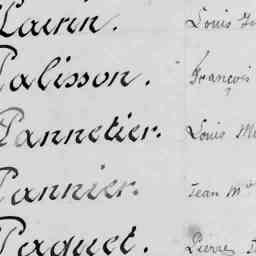 Pairin. Louis
Palisson. François
Pannetier. Louis
Pannier. Jean M
Paquet. Pierre